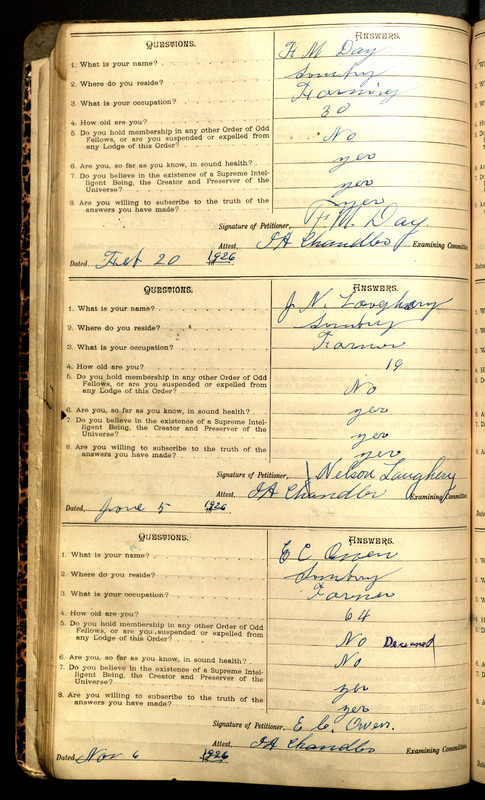 QUESTIONS. ANSWERS.
1. What is your name? F M Day
2. Where do you reside? Sunbury
3. What is your occupation? Farming
4. How old are you? 30
5. Do you hold membership in any other Order of Odd
Fellows, or are you suspended or expelled from
any Lodge of this Order? No
6. Are you, so far as you know, in sound health? yes
7. Do you believe in the existence of a Supreme Intel-
ligent Being, the Creator and Preserver of the
Universe? yes
8. Are you willing to subscribe to the truth of the
answers you have made? yes
Signature of Petitioner, F. M. Day.
Attest, Chandler Examining Committee
Dated, Feb 20 1926
QUESTIONS. ANSWERS.
1. What is your name? J N. Loughery
2. Where do you reside? Sunbury
3. What is your occupation? Farmer
4. How old are you? 19
5. Do you hold membership in any other Order of Odd
Fellows, or are you suspended or expelled from
any Lodge of this Order? No
6. Are you, so far as you know, in sound health? yes
7. Do you believe in the existence of a Supreme Intel-
ligent Being, the Creator and Preserver of the
Universe? yes
8. Are you willing to subscribe to the truth of the
answers you have made? yes
Signature of Petitioner, Nelson Laughery
Attest, Chandler Examining Committee
Dated, June 5 1926
QUESTIONS. ANSWERS.
1. What is your name? E C Owen
2. Where do you reside? Sunbury
3. What is your occupation? Farmer
4. How old are you? 64
5. Do you hold membership in any other Order of Odd
Fellows, or are you suspended or expelled from
any Lodge of this Order? No Deceased
6. Are you, so far as you know, in sound health? No
7. Do you believe in the existence of a Supreme Intel-
ligent Being, the Creator and Preserver of the
Universe? yes
8. Are you willing to subscribe to the truth of the
answers you have made? yes
Signature of Petitioner, E. C. Owen.
Attest, Chandler Examining Committee
Dated, Nov 6 1926